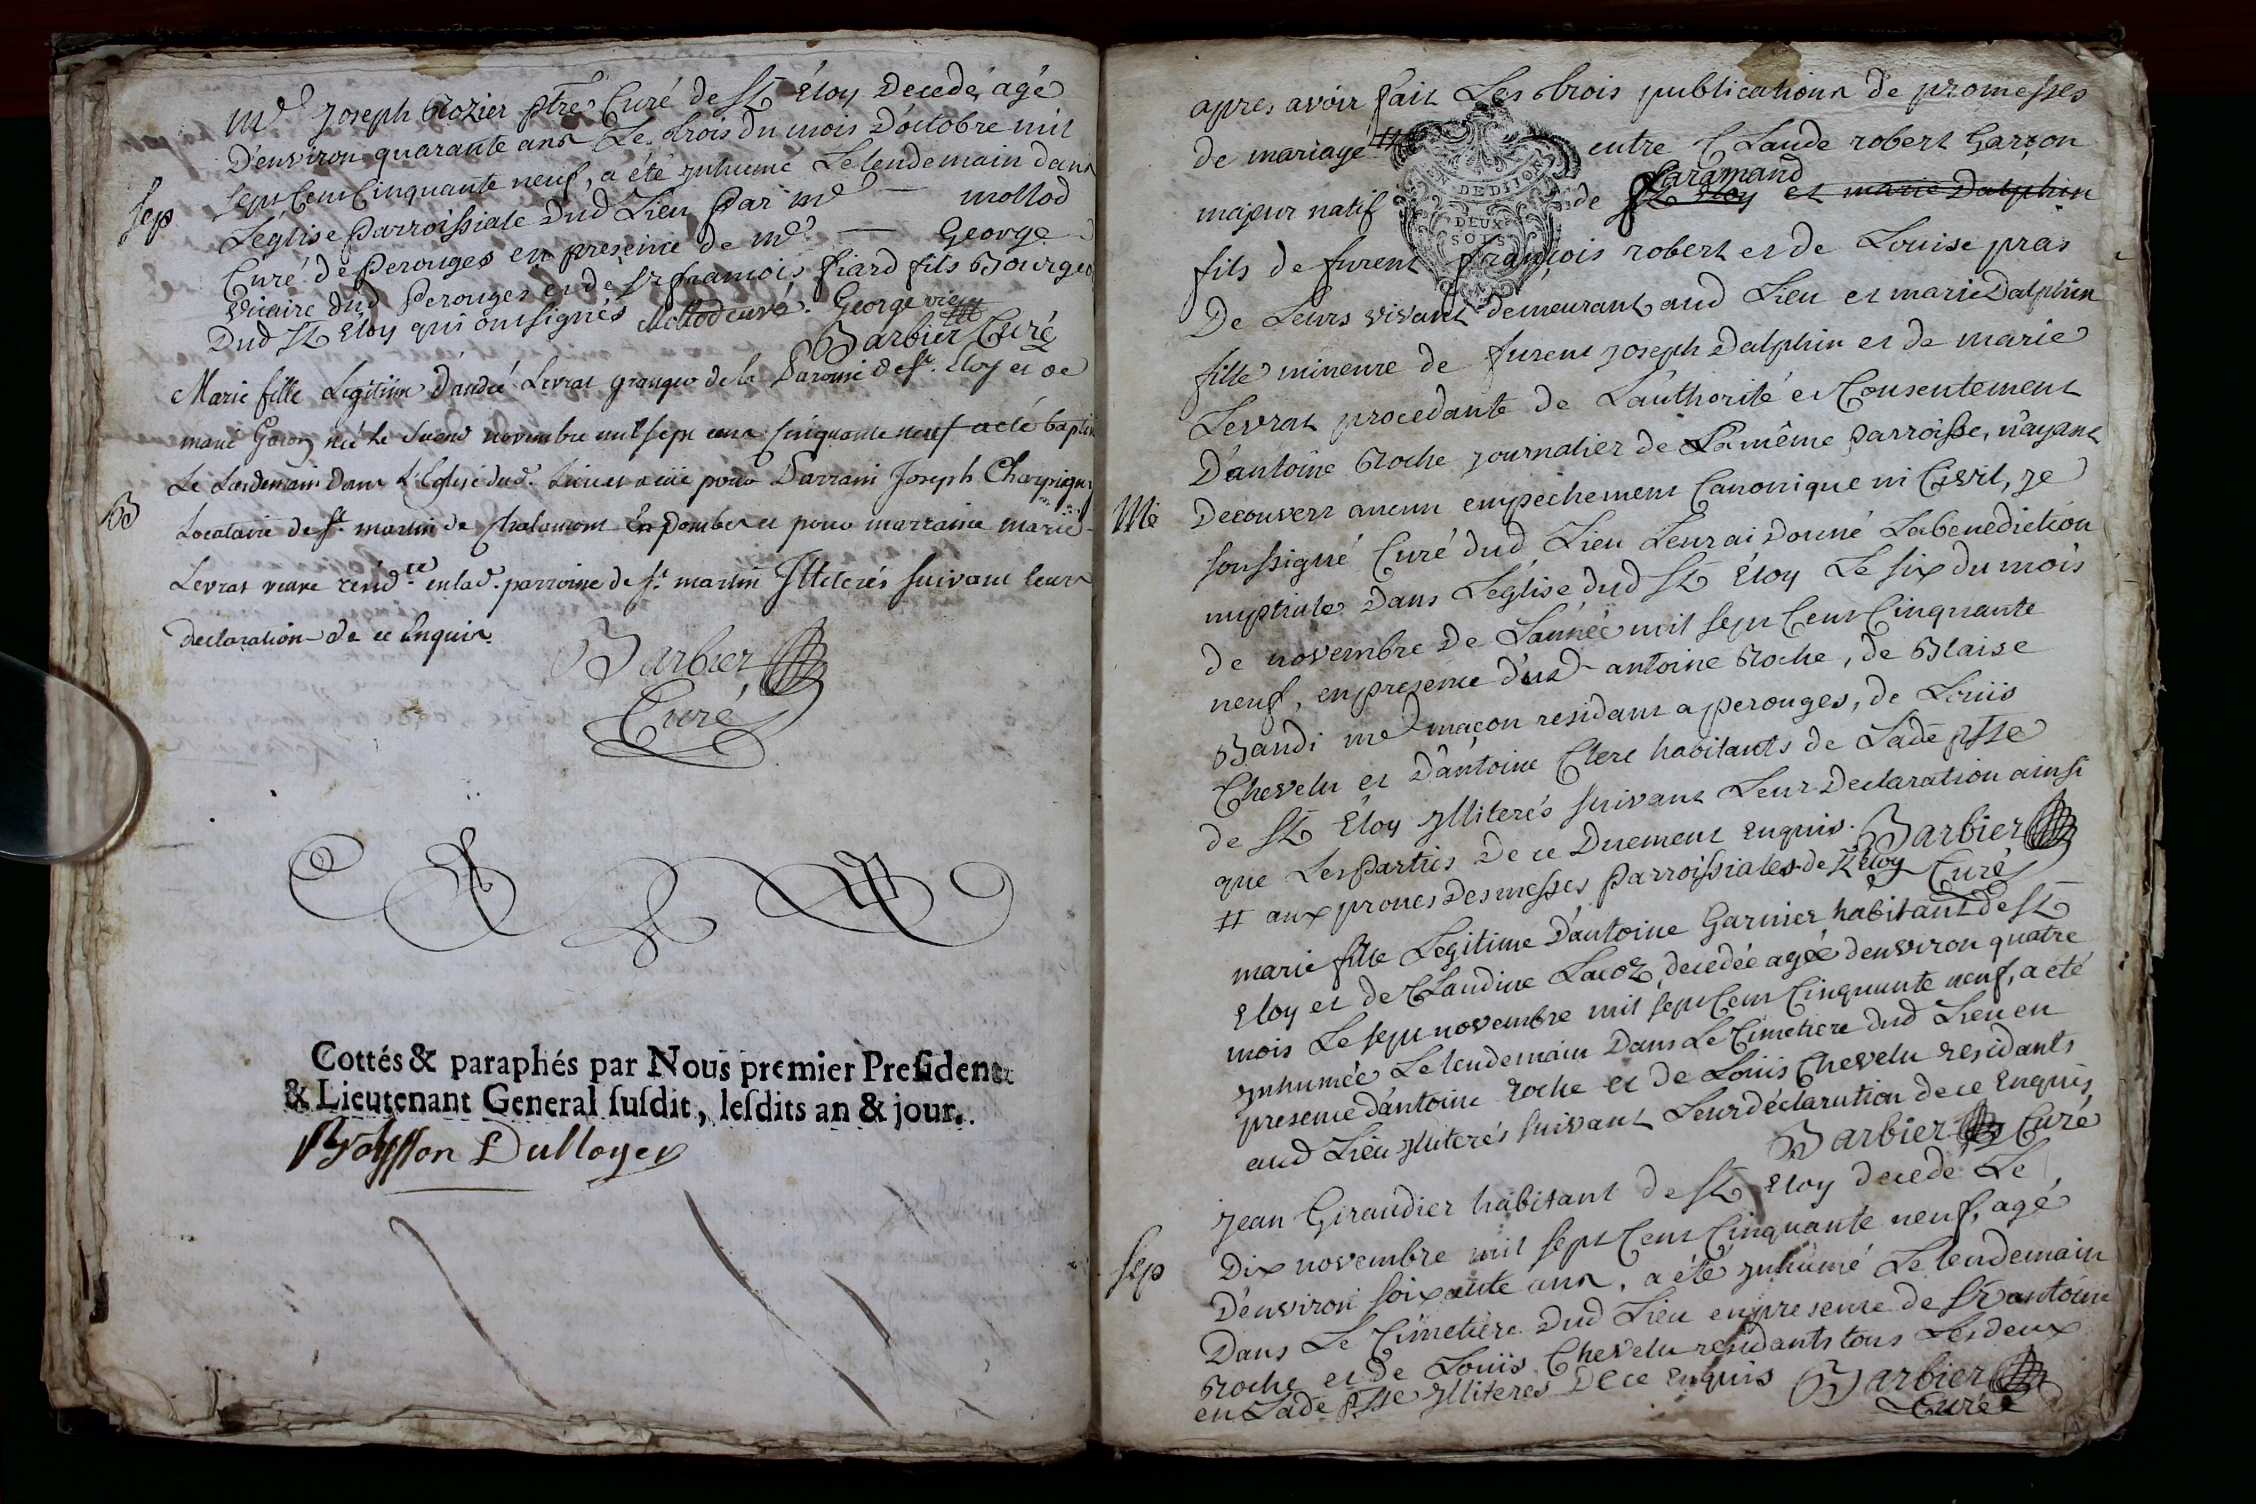 Me Joseph Rozier ptre Curé de St Éloy Decedé, agé
D'environ quarante ans Le trois du mois D'octobre mil
Sep
sept Cent Cinquante neuf, a été ynhumé Le lendemain dans
L'église Parroissiale Dud Lieu Par Me — mollod
Curé de Perouges en presence de Me — George
vicaire dud Perouges et de Sr françois fiard fils Bourgeo
Dud St Eloy qui ont signés Mollod curé. George vic
Barbier Curé
Marie fille Legitime d'andré Levrat granger de la Paroisse de St. Eloy et de
marie née le novembre mil sept cent cinquante neuf a été baptis
Le Lendemain Dans L'Eglise dud. Lieu et a eüe pour Parrain Joseph
B
Locataire de St. martin de Chalamont En Dombes et pour marraine marie
Levrat veuve resid.te en lad. parroisse de St. martin Illiterés suivant leurs
declaration de ce Enquis.
Barbier
Curé
Cottés & paraphés par Nous premier President
& Lieutenant General susdit, lesdits an & jour.
apres avoir fait Les trois publications de promesses
de mariage # entre Claude robert Garçon
faramand
majeur natif de St Eloy et marie Dalphin
EN DE DIJON
DEUX
SOLS
fils de furent François robert et de Louise pras
De Leurs vivant demeurant aud Lieu et marie Dalphin
fille mineure de furent Joseph Dalphin et de marie
Levrat procedante de L'authorité et Consentement
D'antoine Roche journalier de La même Parroisse, n'ayant
Mè
Decouvert aucun empechement Canonique ni Civil, je
soussigné Curé dud Lieu Leur ai Donné La benediction
nuptiale Dans L'église dud St Éloy Le six du mois
de novembre De L'année mil sept Cent Cinquante
neuf, en presence dud antoine Roche, de Blaise
Bandi me maçon residant a perouges, de Louis
Chevelu et D'antoine Clerc habitants de Lade psse
de St Éloy ylliterés suivant Leur Declaration ainsi
que Les Parties De ce Duement enquis. Barbier
# aux prones Des messes Parroissiales de St Eloy Curé
marie fille Legitime D'antoine Garnier habitant de St
Eloy et de Claudine decedée agée d'environ quatre
mois Le sept novembre mil sept Cent Cinquante neuf, a été
ynhumée Le lendemain Dans Le Cimetiere dud Lieu en
presence d'antoine roche et de Louis Chevelu residants
aud Lieu ylliterés suivant Leur déclaration de ce Enquis
Barbier Curé
Jean Giraudier habitant de St Eloy decedé Le
Sep
Dix novembre mil sept Cent Cinquante neuf, agé
D'environ soixante ans, a été ynhumé Le lendemain
Dans Le Cimetière Dud Lieu en presence de Sr antoine
Roche et de Louis Chevelu residants tous Les deux
en Lade psse ylliterés De ce enquis Barbier
Curé